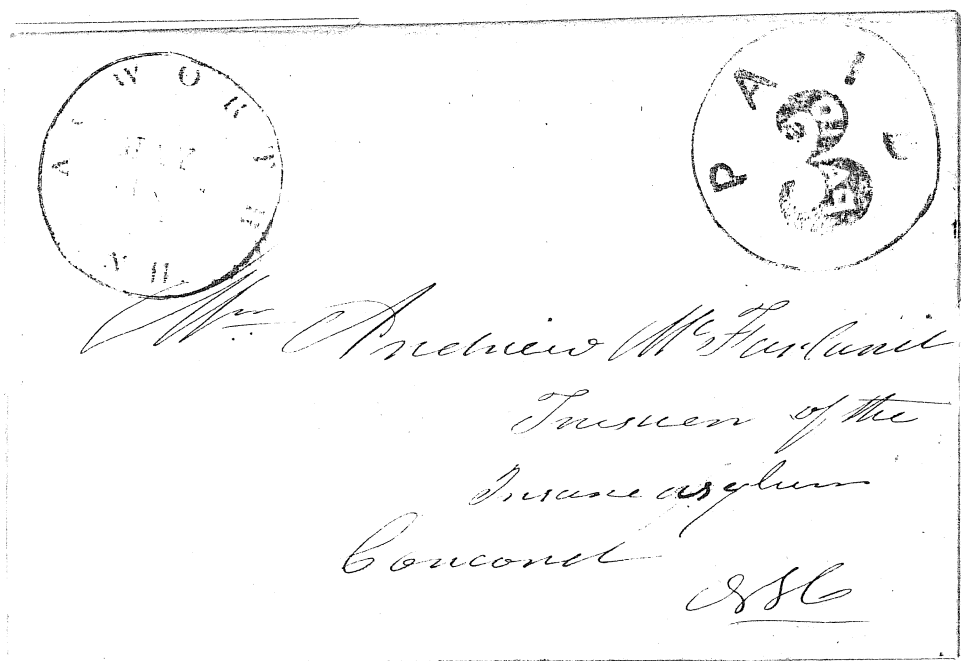 ACWORTH N.H
PAID
3
PAID
Mr. Andrew McFarland
Tresuerr of the
Insane asylum
Concord
N H